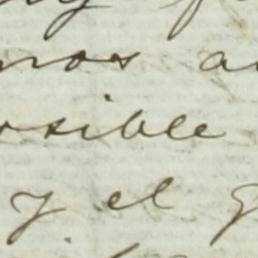 nos a
osible
y el g